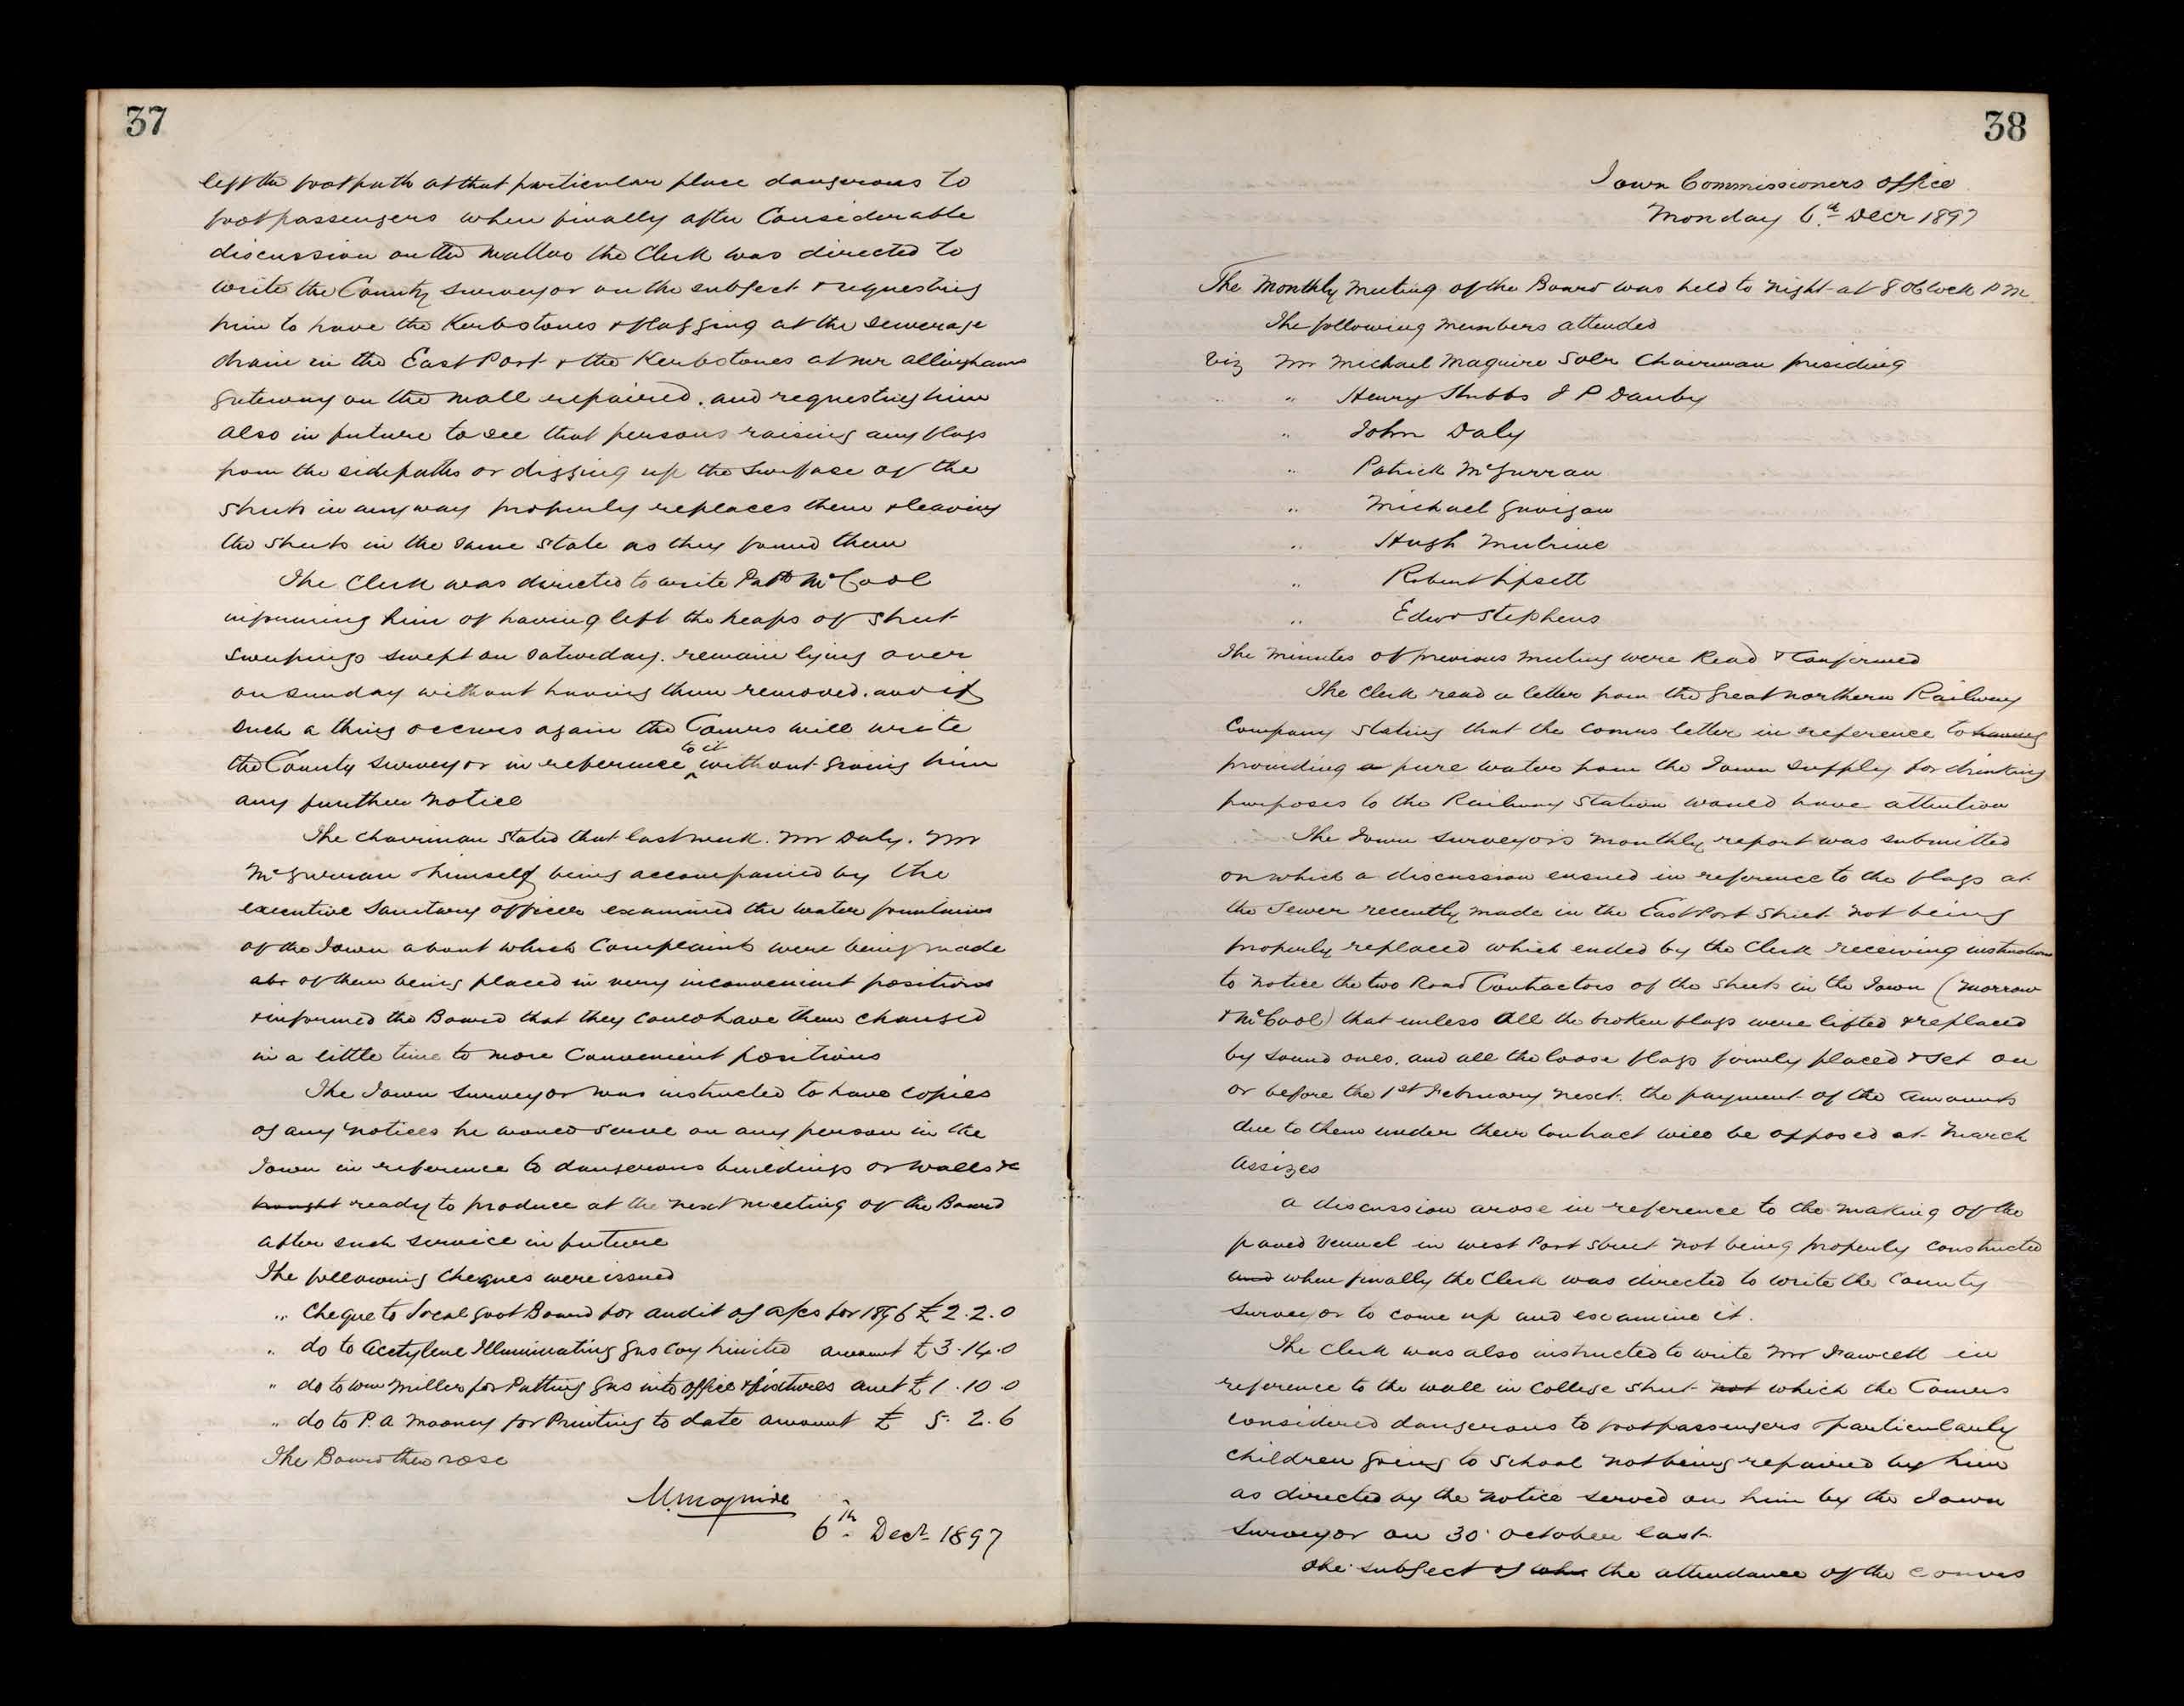 37
left the footpath at that particular place dangerous to
footpassengers when finally after Considerable
discussion on the matter the Clerk was directed to
write the County Surveyor on the subject & requesting
him to have the Kerbstones & flagging at the Sewerage
drain in the East Port & the Kerbstones at Mr Allinghams
gateway on the Mall repaired. and requesting him
also in future to see that persons raising any flags
from the sidepaths or digging up the Surface of the
Streets in any way properly replaces them & leaving
the Streets in the Same State as they found them
The Clerk was directed to write Patk McCool
informing him of having left the heaps of Street
Sweepings swept on Saturday. remain lying over
on Sunday without having them removed. and if
Such a thing occurs again the Comrs will write
the County Surveyor in reference to it without giving him
any further notice
The Chairman Stated that last week. Mr Daly. Mr
McGurran & himself being accompanied by the
executive Sanitary Officer examined the water fountains
of the Town about which Complaints were being made
abt of them being placed in very inconvenient positions
& informed the Board that they could have them changed
in a little time to more Convenient positions
The Town Surveyor was instructed to have copies
of any notices he would serve on any person in the
Town in reference to dangerous buildings or walls &c
brought ready to produce at the next meeting of the Board
after such service in future
The following Cheques were issued
" Cheque to Local Govt Board for audit of a/cs for 1896 £2.2.0
" do to Acetylene Illuminating Gas Coy Limited amount £3.14.0
" do to Wm Miller for Putting Gas into office & fixtures amt £1.10.0
" do to P. A Mooney for Printing to date amount £ 5. 2.6
The Board then rose
M. Maguire
6th Decr 1897
38
Town Commissioners Office
Monday 6th Decr 1897
The Monthly Meeting of the Board was held to night at 8 OClock P M
The following members attended
Viz Mr Michael Maguire Solr Chairman presiding
" Henry Stubbs J P Danby
" John Daly
" Patrick McGurran
" Michael Gavigan
" Hugh Mulrine
" Robert Lipsett
" Edwd Stephens
The Minutes of previous Meeting were Read & Confirmed
The Clerk read a letter from the Great Northern Railway
Company Stating that the Comrs letter in reference to having
providing a pure water from the Town Supply for drinking
purposes to the Railway Station would have attention
The Town Surveyors monthly report was submitted
on which a discussion ensued in reference to the flags at
the Sewer recently made in the East Port Street not being
properly replaced which ended by the Clerk receiving instructions
to notice the two Road Contractors of the Streets in the Town (Morrow
& McCool) that unless All the broken flags were lifted & replaced
by sound ones. and all the loose flags firmly placed & set on
or before the 1st February next. the payment of the Amounts
due to them under their Contract will be opposed at March
Assizes
a discussion arose in reference to the making of the
paved vennel in West Port Street not being properly constructed
and when finally the Clerk was directed to write the County
Surveyor to come up and examine it.
The Clerk was also instructed to write Mr Fawcett in
reference to the wall in College Street not which the Comrs
considered dangerous to footpassengers & particularly
children going to School not being repaired by him
as directed by the notice served on him by the Town
Surveyor on 30 October last
The subject of the attendance of the Comrs